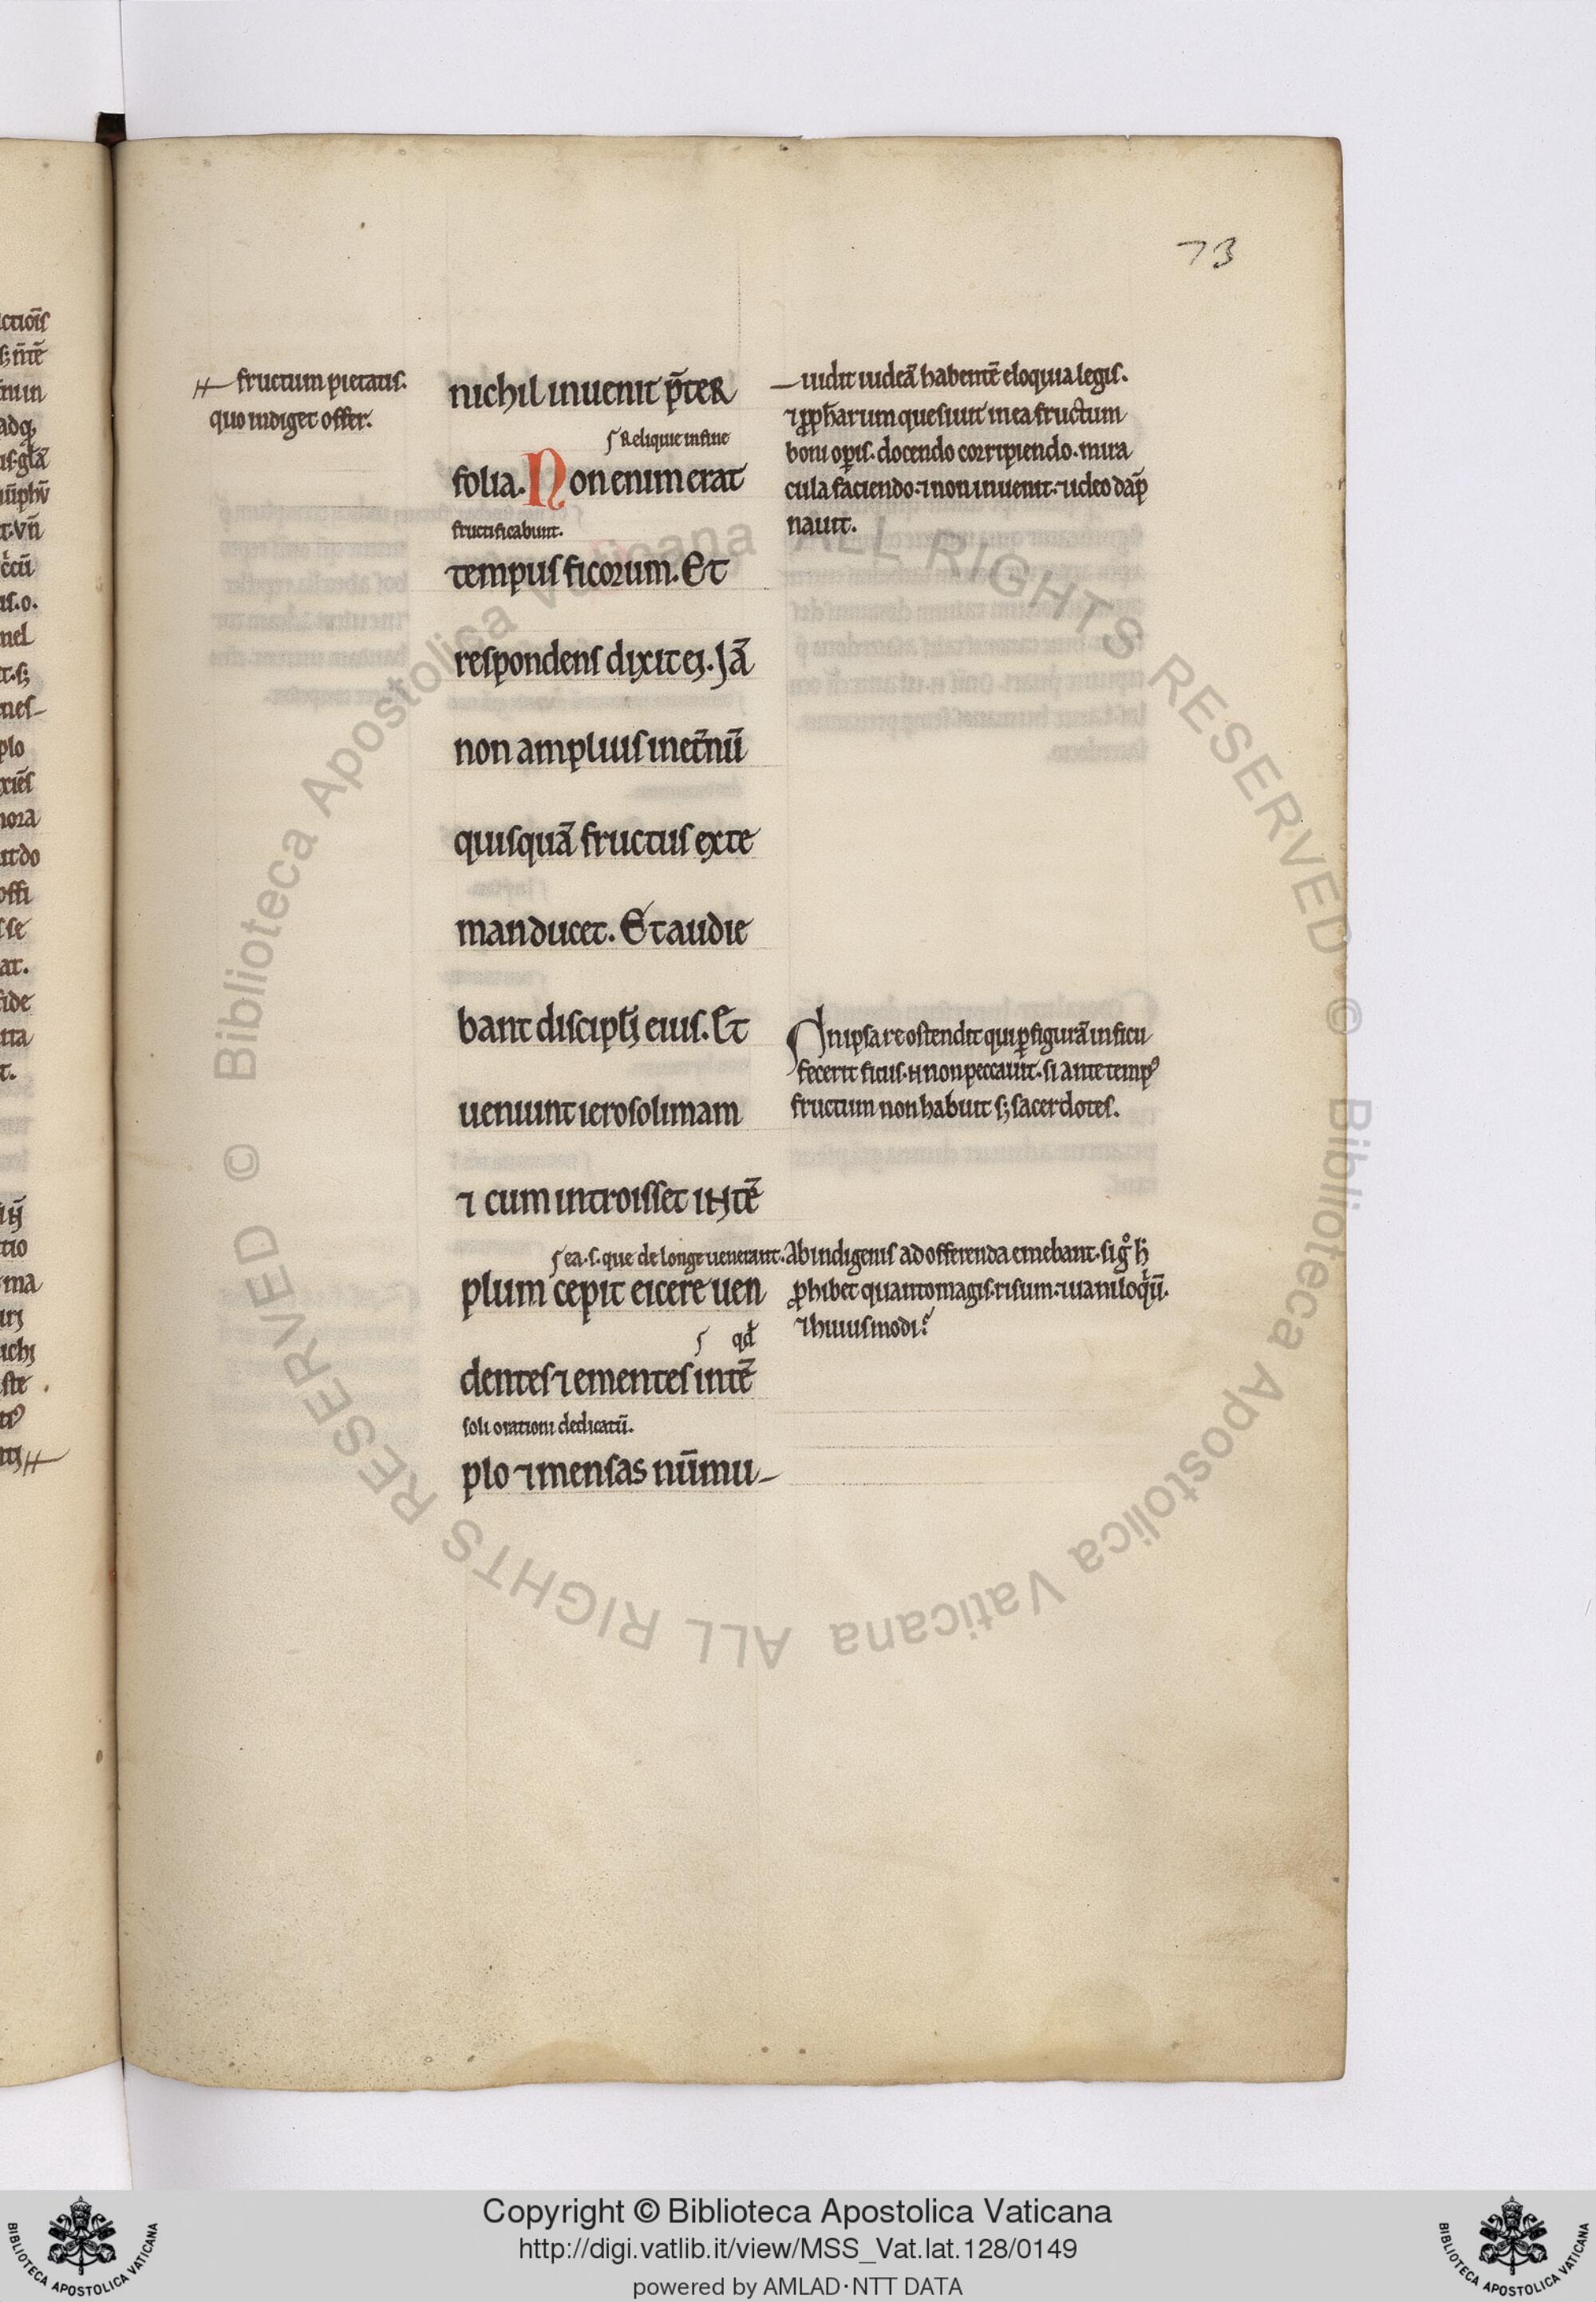 73
fructum pietatis.
quo indiget offert.
nichil inuenit p̄ter
ſ Relique in fine
folia. Non enim erat
fructificabunt.
tempus ficorum. Et
respondens dixit ei. Jā
non amplius inet̄nū
quisquā fructus exte
manducet. Et audie
bant discipłi eius. Et
ueniunt ierosolimam
⁊ cum introisset in tē
ſ ea .s. que de longe uenerant.
plum cepit eicere uen
ſ qd̄
dentes ⁊ ementes in tē
soli orationi dedicatū.
plo ⁊ mensas nūmu-
uidit iudeā habentē eloquia legis.
⁊ ꝓph̄arum quesiuit in ea fructum
boni oꝑis. docendo corripiendo. mira
cula faciendo. ⁊ non inuenit. ⁊ ideo dāp
nauit.
In ipsa re ostendit qui ꝑ figurā in ficu
fecerit ficus. non peccauit. si ante tempꝰ
fructum non habuit sꝫ sacerdotes.
Ab indigenis ad offerenda emebant. si gͦ h̄
ꝓhibet quanto magis. risum. ⁊ uaniloqͥū.
⁊ huiusmodi.
ALL RIGHTS RESERVED © Biblioteca Apostolica Vaticana ALL RIGHTS RESERVED © Biblioteca Apostolica Vaticana
Copyright © Biblioteca Apostolica Vaticana
http://digi.vatlib.it/view/MSS_Vat.lat.128/0149
powered by AMLAD·NTT DATA
BIBLIOTECA APOSTOLICA VATICANA
BIBLIOTECA APOSTOLICA VATICANA